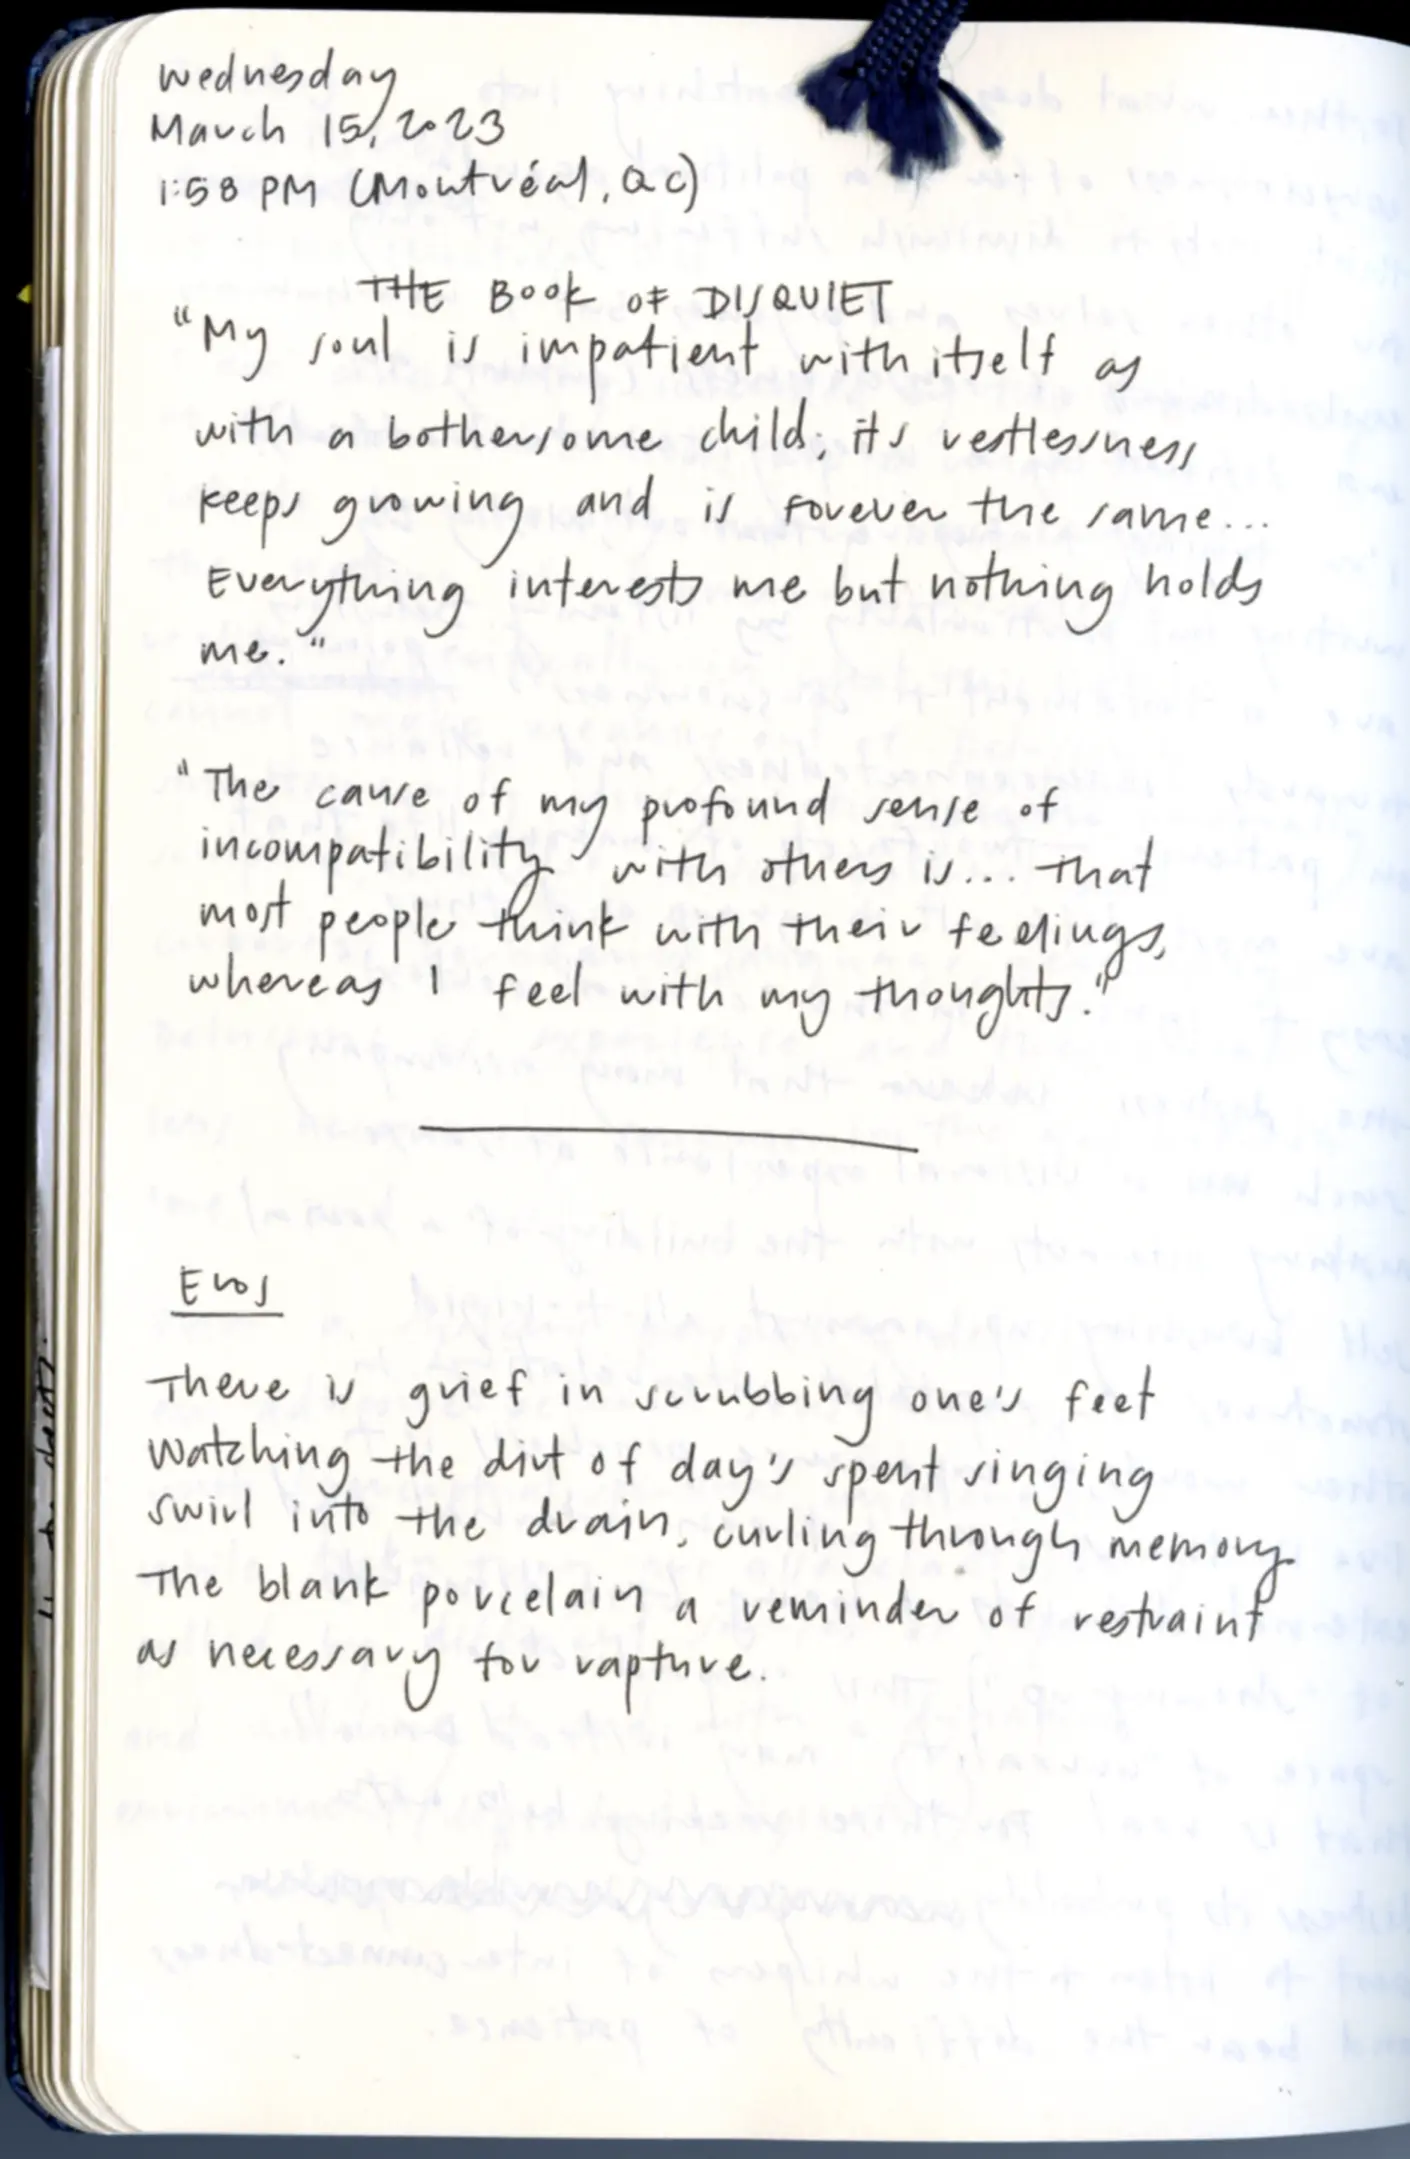 Wednesday
March 15, 2023
1:58 PM (Montréal, QC)
THE BOOK OF DISQUIET
"My soul is impatient with itself as
with a bothersome child; its restlessness
keeps growing and is forever the same...
Everything interests me but nothing holds
me."
"The cause of my profound sense of
incompatibility with others is... that
most people think with their feelings,
whereas I feel with my thoughts."
Eros
There is grief in scrubbing one's feet
Watching the dirt of day's spent singing
swirl into the drain, curling through memory
The blank porcelain a reminder of restraint
as necessary for rapture.